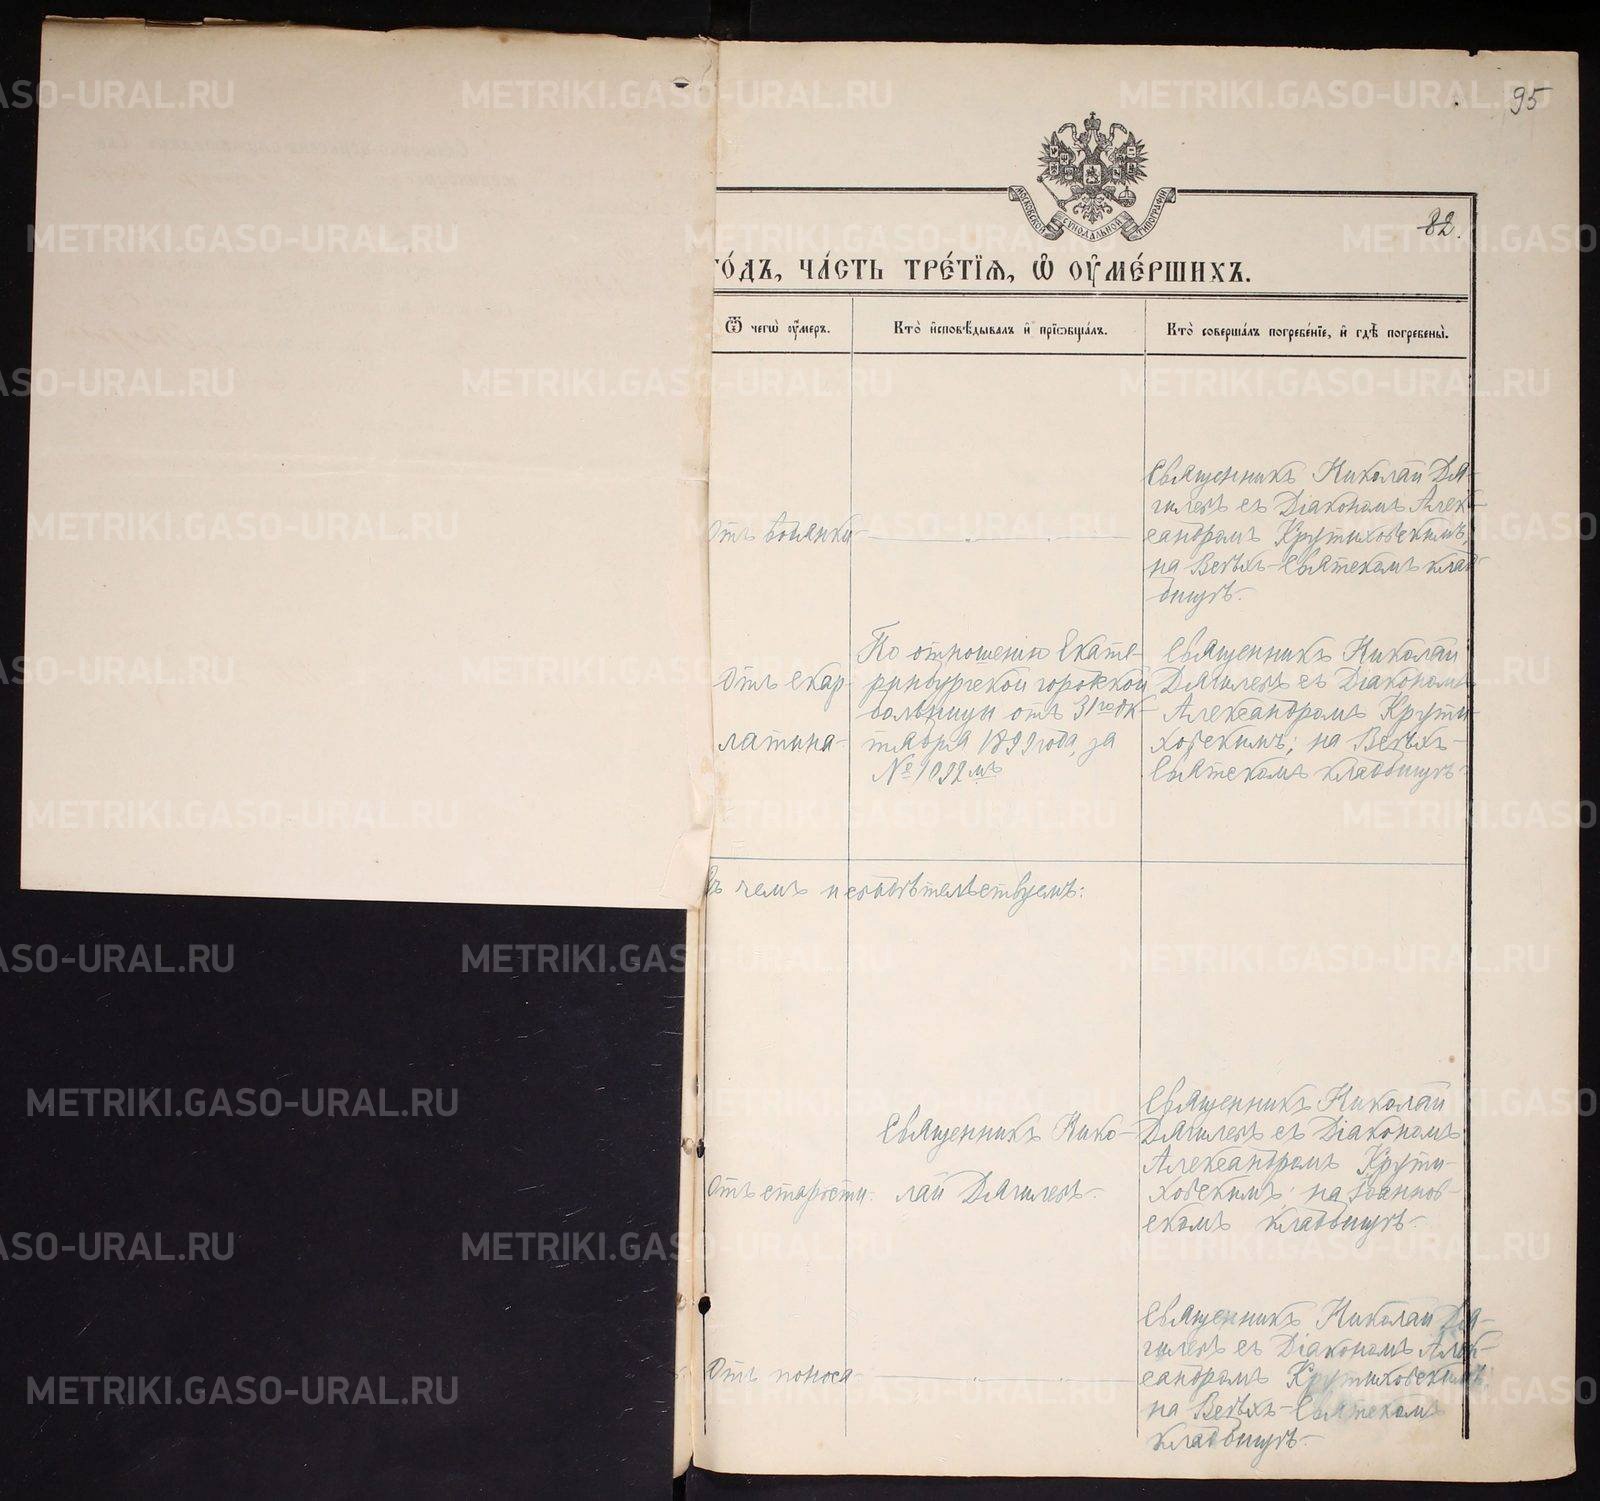 95
МОСКОВСКОЙ СѴНОДАЛЬНОЙ ТИПОГРАФІИ
82.
го́дъ, ча́сть тре́тїѧ, ѡ҆ ᲂу҆ме́ршихъ.
Ѿ чегѡ̀ ᲂу҆́меръ.
Кто̀ и҆сповѣ́дывалъ и҆ прїѡбща́лъ.
Кто̀ соверша́лъ погребе́нїе, и҆ гдѣ̀ погребены̀.
Отъ водянки
Священникъ Николай Дя-
гилевъ съ Діакономъ Алек-
сандромъ Крутиховскимъ,
на Всѣхъ-Святскомъ клад-
бищѣ.
Отъ скар-
латина
По отношенію Екате-
ринбургской городской
больницы отъ 31го Ок-
тября 1899 года, за
№ 1092мъ
Священникъ Николай
Дягилевъ съ Діакономъ
Александромъ Крути-
ховскимъ; на Всѣхъ-
Святскомъ кладбищѣ.
Въ чемъ и свидѣтельствуемъ:
Отъ старости.
Священникъ Нико-
лай Дягилевъ.
Священникъ Николай
Дягилевъ съ Діакономъ
Александромъ Крути-
ховскимъ; на Іоаннов-
скомъ кладбищѣ.
Отъ поноса
Священникъ Николай Дя-
гилевъ съ Діакономъ Алек-
сандромъ Крутиховскимъ,
на Всѣхъ-Святскомъ
кладбищѣ.
METRIKI.GASO-URAL.RU